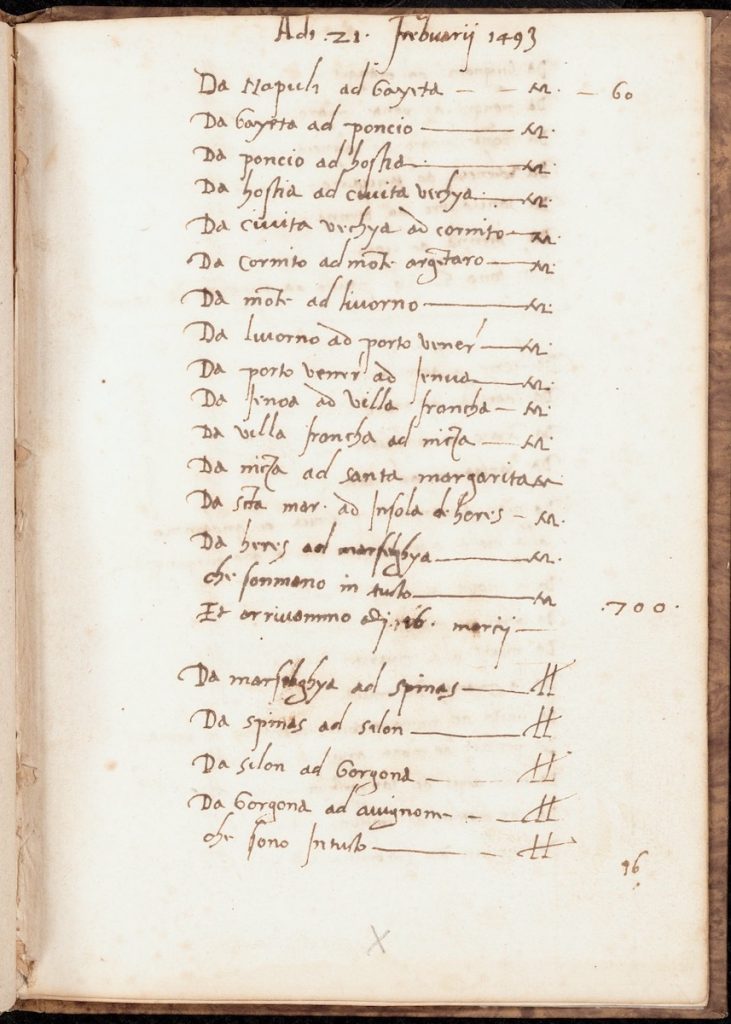 Adi .21. Frebuarij 1493
Da Napuli ad Gayeta - - M. - 60
Da Gayeta ad poncio — M.
Da poncio ad hostia — M.
Da hostia ad civita vechya — M.
Da civita vechya ad cornito — M.
Da cornito ad mōte argētaro — M.
Da mōte ad livorno — M.
Da livorno ad porto vener' — M.
Da porto vener' ad Jenua — M.
Da Jenoa ad villa francha — M.
Da villa francha ad nicza — M.
Da nicza ad santa margarita M
Da scta mar. ad Insola de heres - M.
Da heres ad marseghya — M.
che sonmano in tucto — M .700.
Et arrivammo adj .16. marcij —
Da marseghya ad spinas — ll
Da spinas ad silon — ll
Da silon ad Gorgona - ll
Da Gorgona ad avignone - - ll
che sono In tucto — - ll
96
X